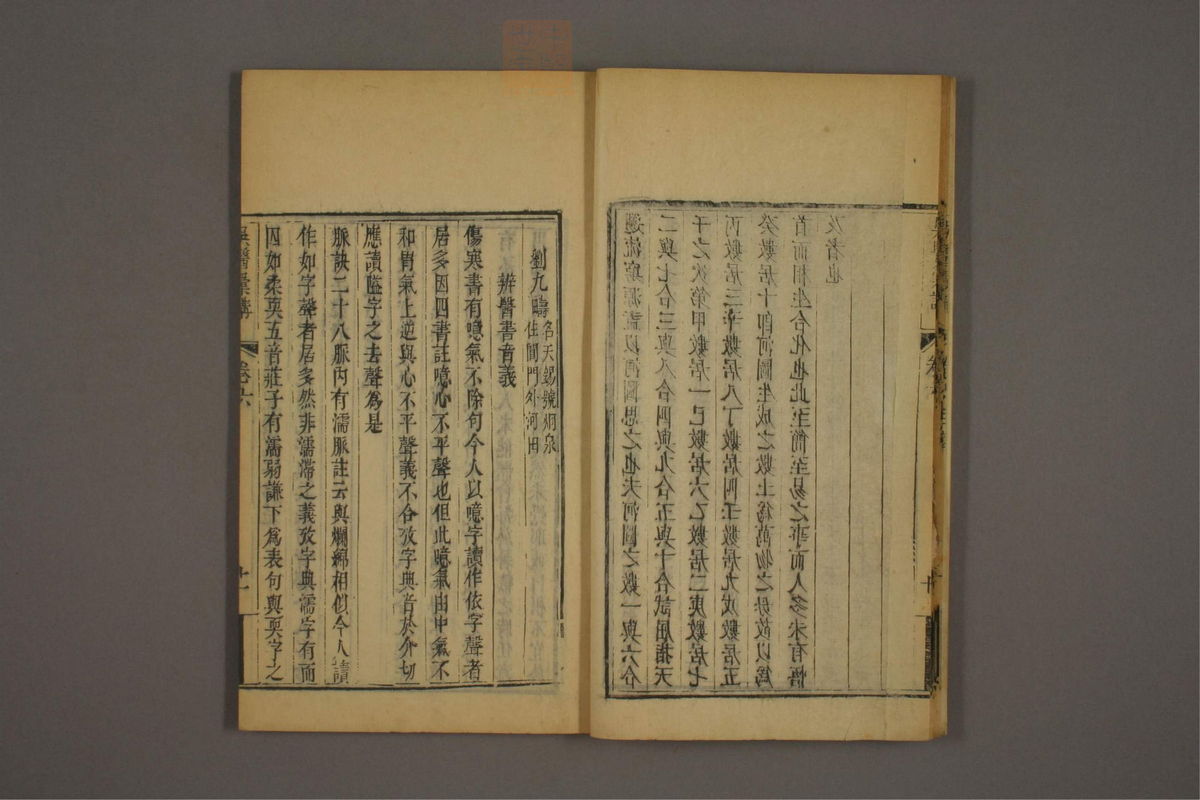 遡流窮源請以河圖思之也夫河圖之數一與六合
二與七合三與八合四與九合五與十合試屈指天
干之次第甲數居一己數居六乙數居二庚數居七
丙數居三辛數居八丁數居四壬數居九戊數居五
癸數居十即河圖生成之數土爲萬物之母故以爲
首而相生合化也此至簡至易之事而人多未有悟
及者也
劉九疇
名天錫號炯泉
住閶門外河田
辨醫書音義
傷寒書有噫氣不除句今人以噫字讀作依字聲者
居多因四書註噫心不平聲也但此噫氣由中氣不
和胃氣上逆與心不平聲義不合攷字典音於介切
應讀隘字之去聲爲是
脈訣二十八脈內有濡脈註云與爛綿相似今人讀
作如字聲者居多然非濡滯之義攷字典濡字有而
因如柔耎五音莊子有濡弱謙下爲表句與耎字之
吳醫彙講
卷六
十一